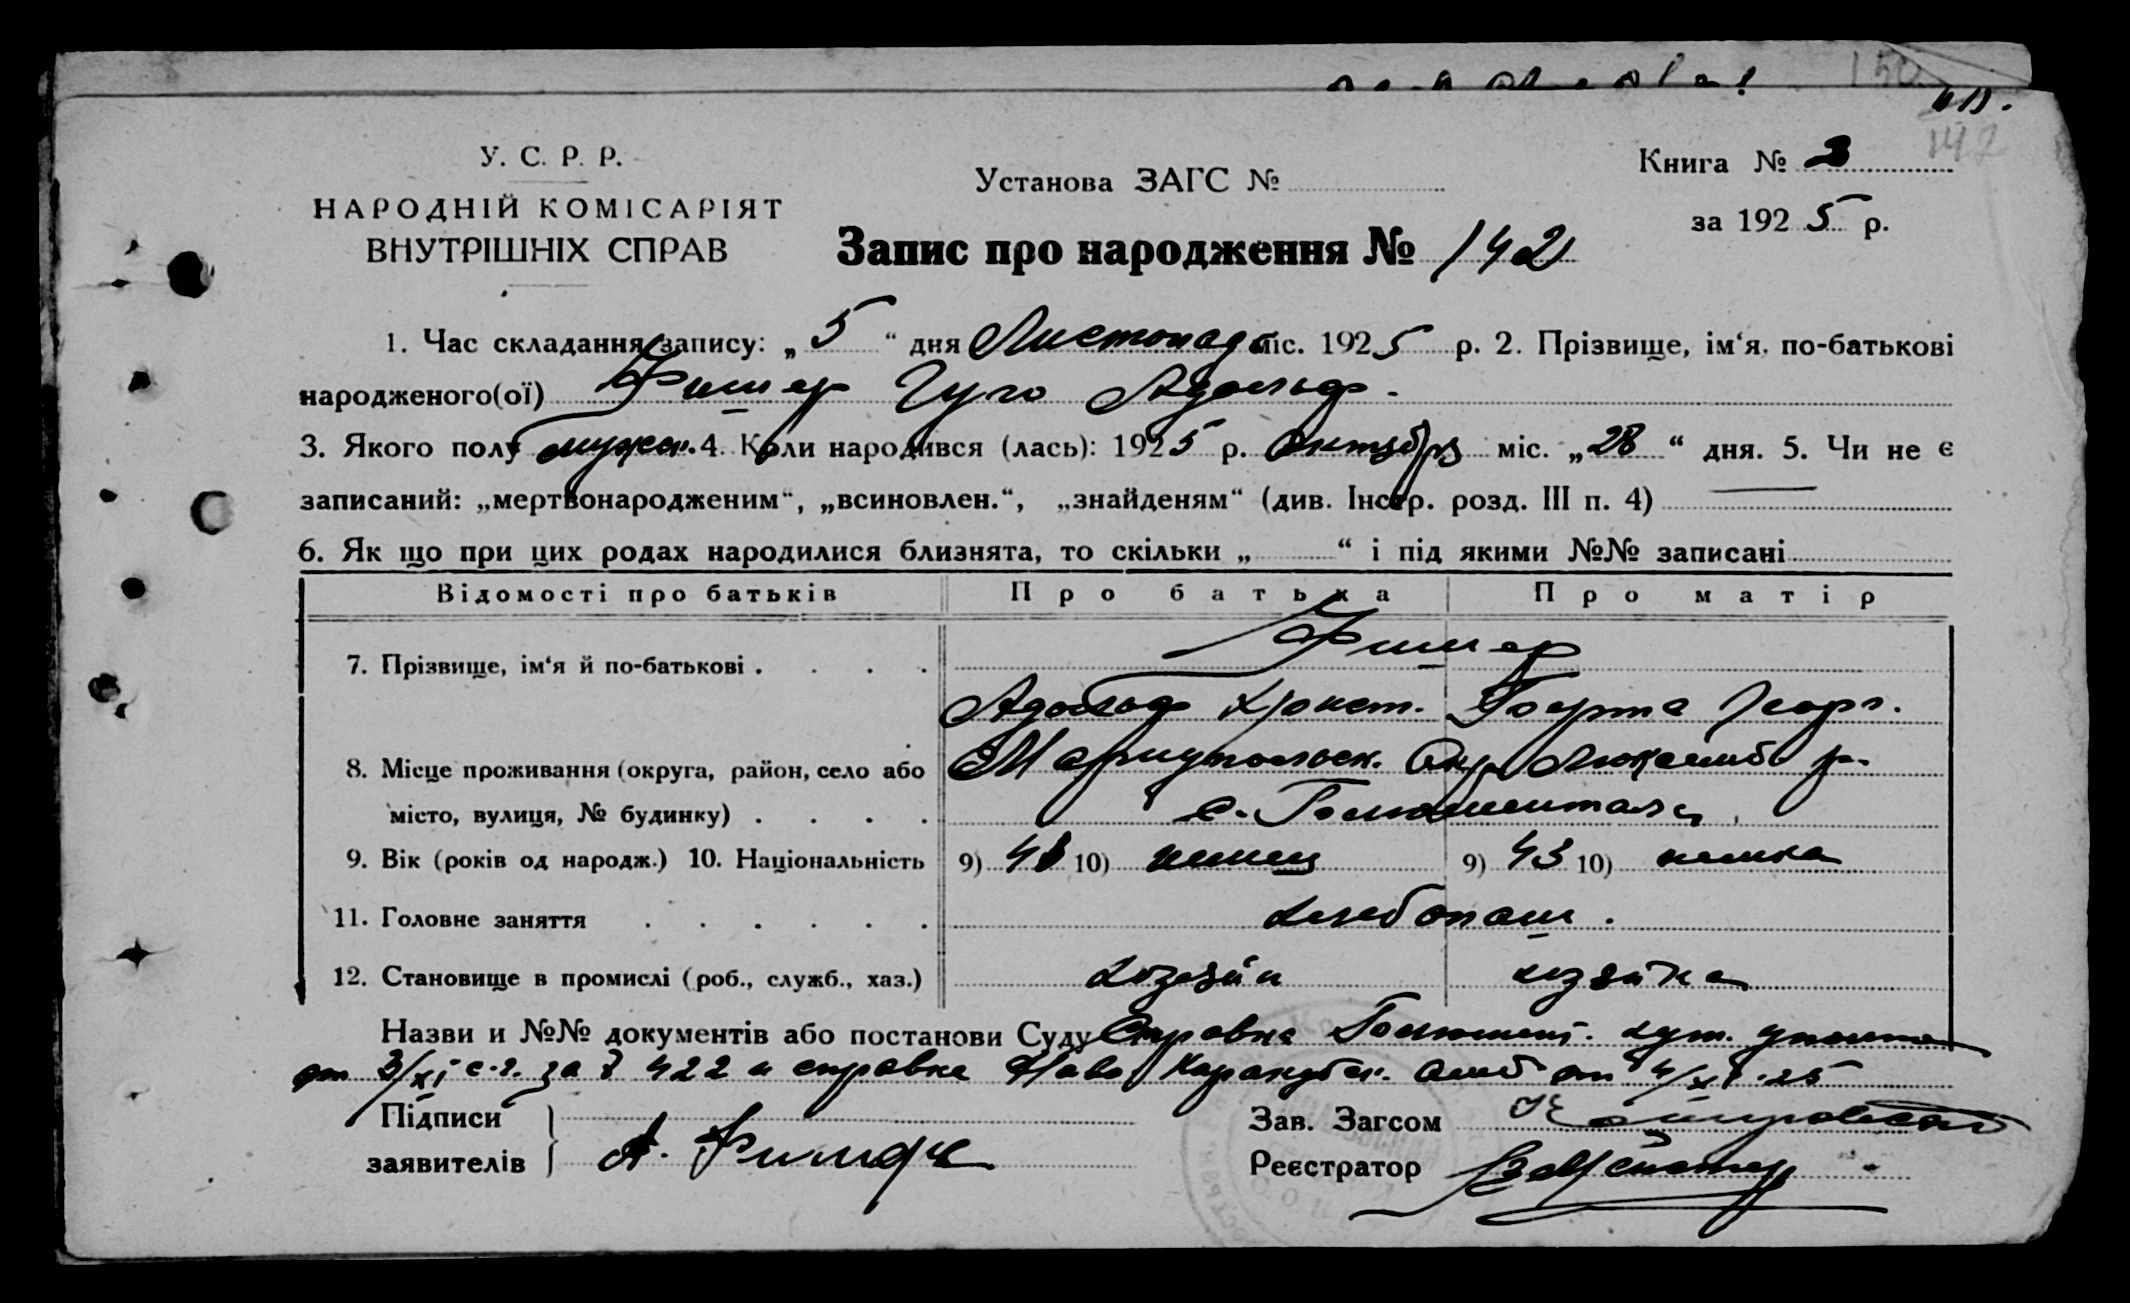 У. С. Р. Р.
НАРОДНІЙ КОМІСАРІЯТ
ВНУТРІШНІХ СПРАВ
Установа ЗАГС №
Книга № 3
за 1925 р.
Запис про народження № 142
142
1. Час складання запису: „5“ дня Листопад міс. 1925 р. 2. Прізвище, ім‘я, по-батькові
народженого(ої) Фишер Гуго Адольф.
3. Якого полу мужск. 4. Коли народився (лась): 1925 р. Октября міс. „28“ дня. 5. Чи не є
записаний: „мертвонародженим“, „всиновлен.“, „знайденям“ (див. Інстр. розд. III п. 4) —
6. Як що при цих родах народилися близнята, то скільки „ “ і під якими №№ записані
Відомості про батьків Про батька Про матір
7. Прізвище, ім‘я й по-батькові . . . . Фишер
Адольф Христ. Берта Георг.
8. Місце проживання (округа, район, село або Мариупольск. Окр. Люксемб р.
місто, вулиця, № будинку) . . . . с.
9. Вік (років од народж.) 10. Національність 9) 43 10) немец 9) 43 10) немка
11. Головне заняття . . . . . . хлебопаш.
12. Становище в промислі (роб., служб., хаз.) хозяйн хозяйка
Назви и №№ документів або постанови Суду Справка хут.
от 3/XI с.г. за № 422 и справка Ново Каракубск. от 4/XI-25
Підписи
заявителів } А. Фишер
Зав. Загсом
Реєстратор